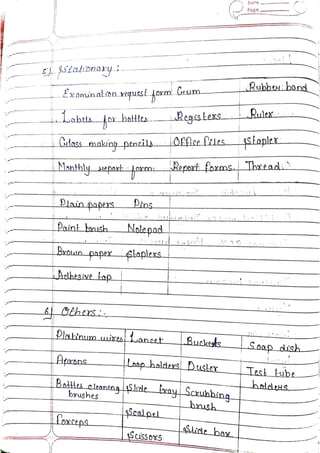 Date
Page
5] Stationary :
Examination request form Gum Rubber band
Labels for bottles Registers Ruler
Glass making pencils Office files Stapler
Monthly report form Report forms Thread
Plain papers Pins
Paint brush Notepad
Brown paper Staplers
Adhesive tap
6] Others :-
Platinum wires Lancet Buckets Soap dish
Aprons Loop holders Duster Test tube holders
Bottles cleaning brushes Slide tray Scrubbing brush
Forceps Scalpel Slide box
Scissors